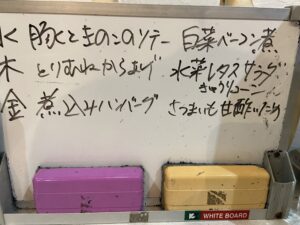 水 豚ときのこのソテー 白菜ベーコン煮
木 とりむねからあげ 水菜レタスサラダ
きゅうりコーン
金 煮込みハンバーグ さつまいも甘酢いため
WHITE BOARD